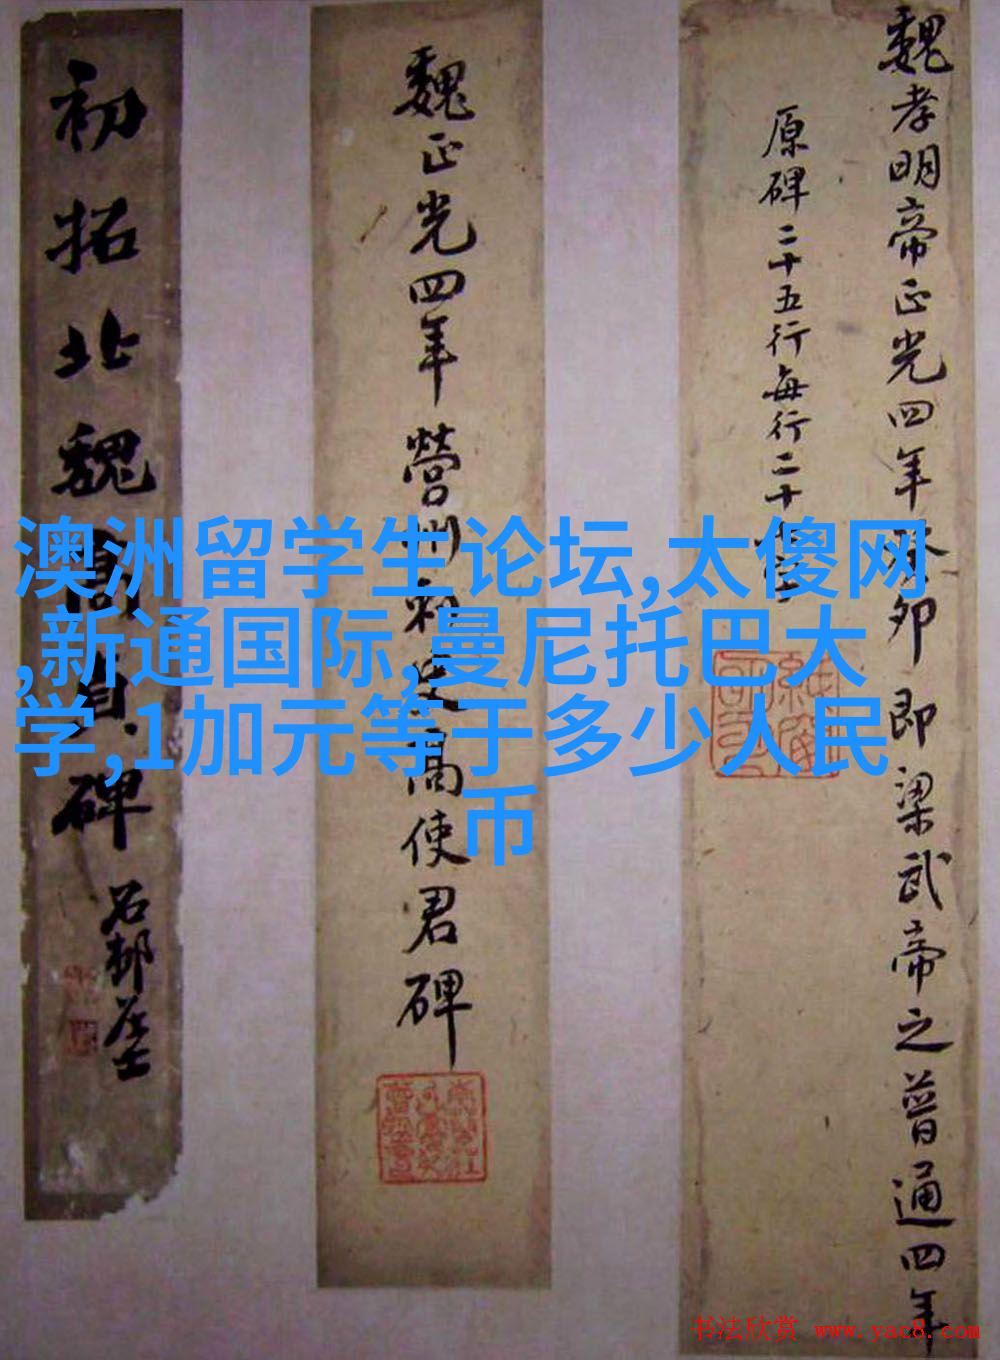 魏孝明帝正光四年癸卯即梁武帝之普通四年
原碑二十五行每行二十
魏正光四年營州刺史高使君碑
初拓北魏高貞碑
石邨居士
澳洲留学生论坛,太傻网
,新通国际,曼尼托巴大
学,1加元等于多少人民
币
书法欣赏 www.yac8.com